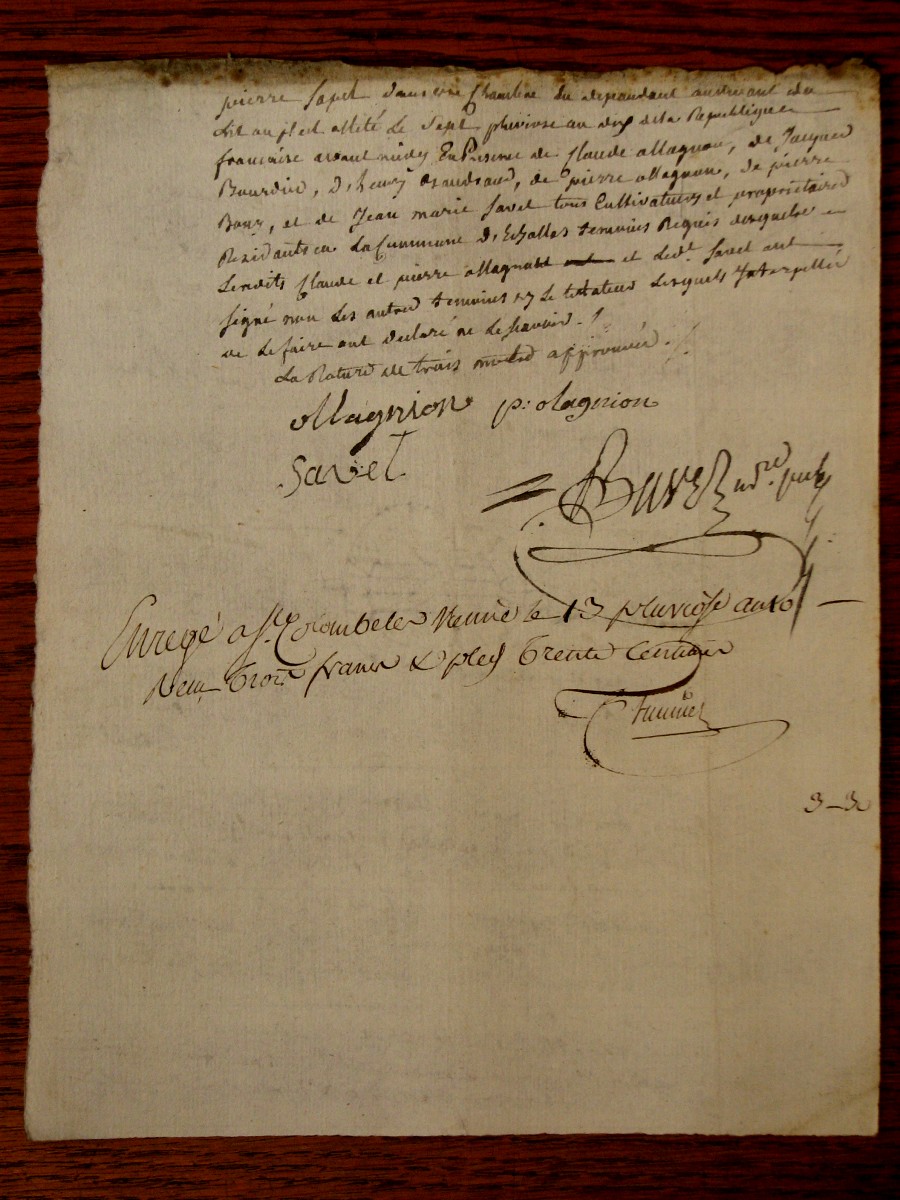 pierre savel dans une Chambre du dependant au devant du
dit au il est allité le Sept pluviose an dix de la Republique
française avant midy En Presence de Claude ollagnon, de Jacques
Bourdin, d'henry de pierre ollagnon, de pierre
Bony, et de Jean marie Savel tous Cultivateurs et propriétaires
Residants en La Commune D'Echallas temoins Requis desquels
Lesdits Claude et pierre ollagnon et Ledt. Savel ont
signé non les autres temoins ny Le testateur Lesquels Interpellés
de Le faire ont declaré ne Le sçavoir ./.
La Rature de trois mots approuvée ./.
ollagnion p: olagnion
Savel
Buvet nore. pub
Enregé a Ste. Colombe les Vienne le 13 pluviose an 10
Reçu trois francs & plus trente Centimes
3-3